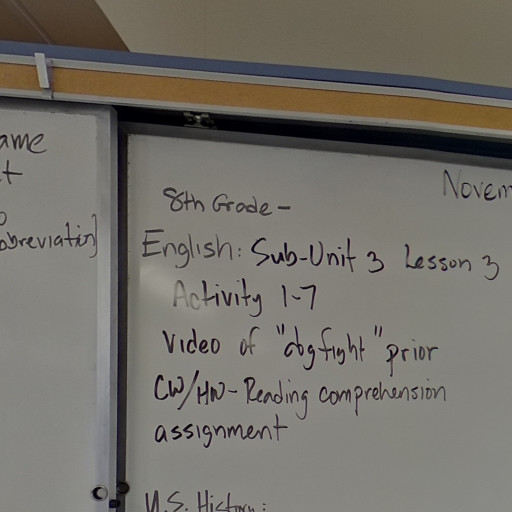 ame
t
abbreviation]
Novem
8th Grade -
English: Sub-Unit 3 Lesson 3
Activity 1-7
Video of "dogfight" prior
CW/HW - Reading comprehension
assignment
U.S. History: